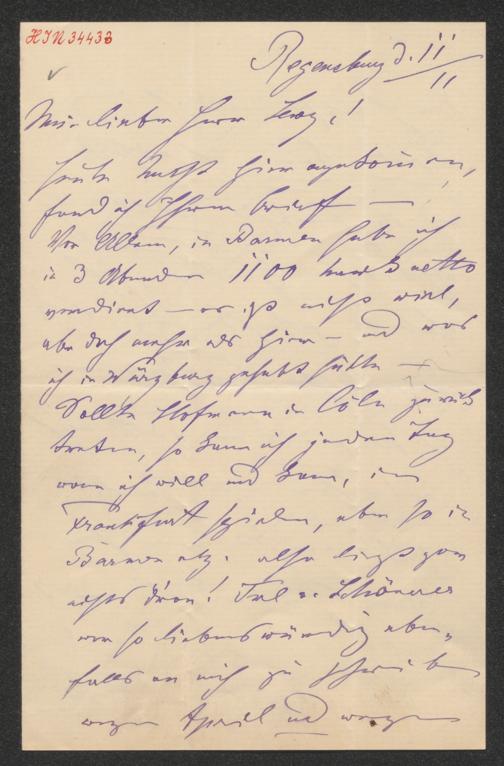 HIN 34433
Regensburg d. 11/11
Mein lieber Herr !
heute Nachts hier angekommen,
fand ich Ihren Brief —
Vor Allem, in Barmen habe ich
in 3 Abenden 1100 mark netto
verdient — es ist nicht viel,
aber doch mehr als hier — und was
ich in Würzburg gehabt hätte —
Sollte Hofmann in Cöln zurück
treten, so kann ich jeden Tag
wenn ich will und kann, in
Frankfurt spielen, eben so in
Barmen etz. also liegt gar
nichts dran! Frl v. Schönerer
war so liebenswürdig eben-
falls an mich zu schreiben
wegen April und wegen